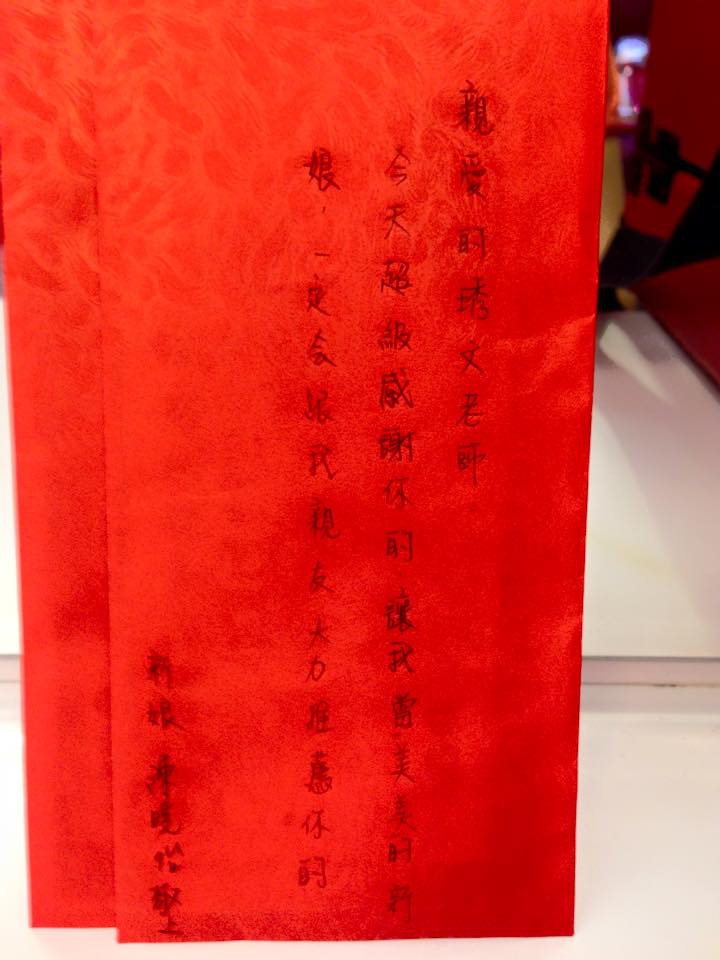 親愛的琇文老師
今天超級感謝你的,讓我當美美的新
娘,一定會跟我親友大力推薦你的
新娘 陳曉怡 敬上